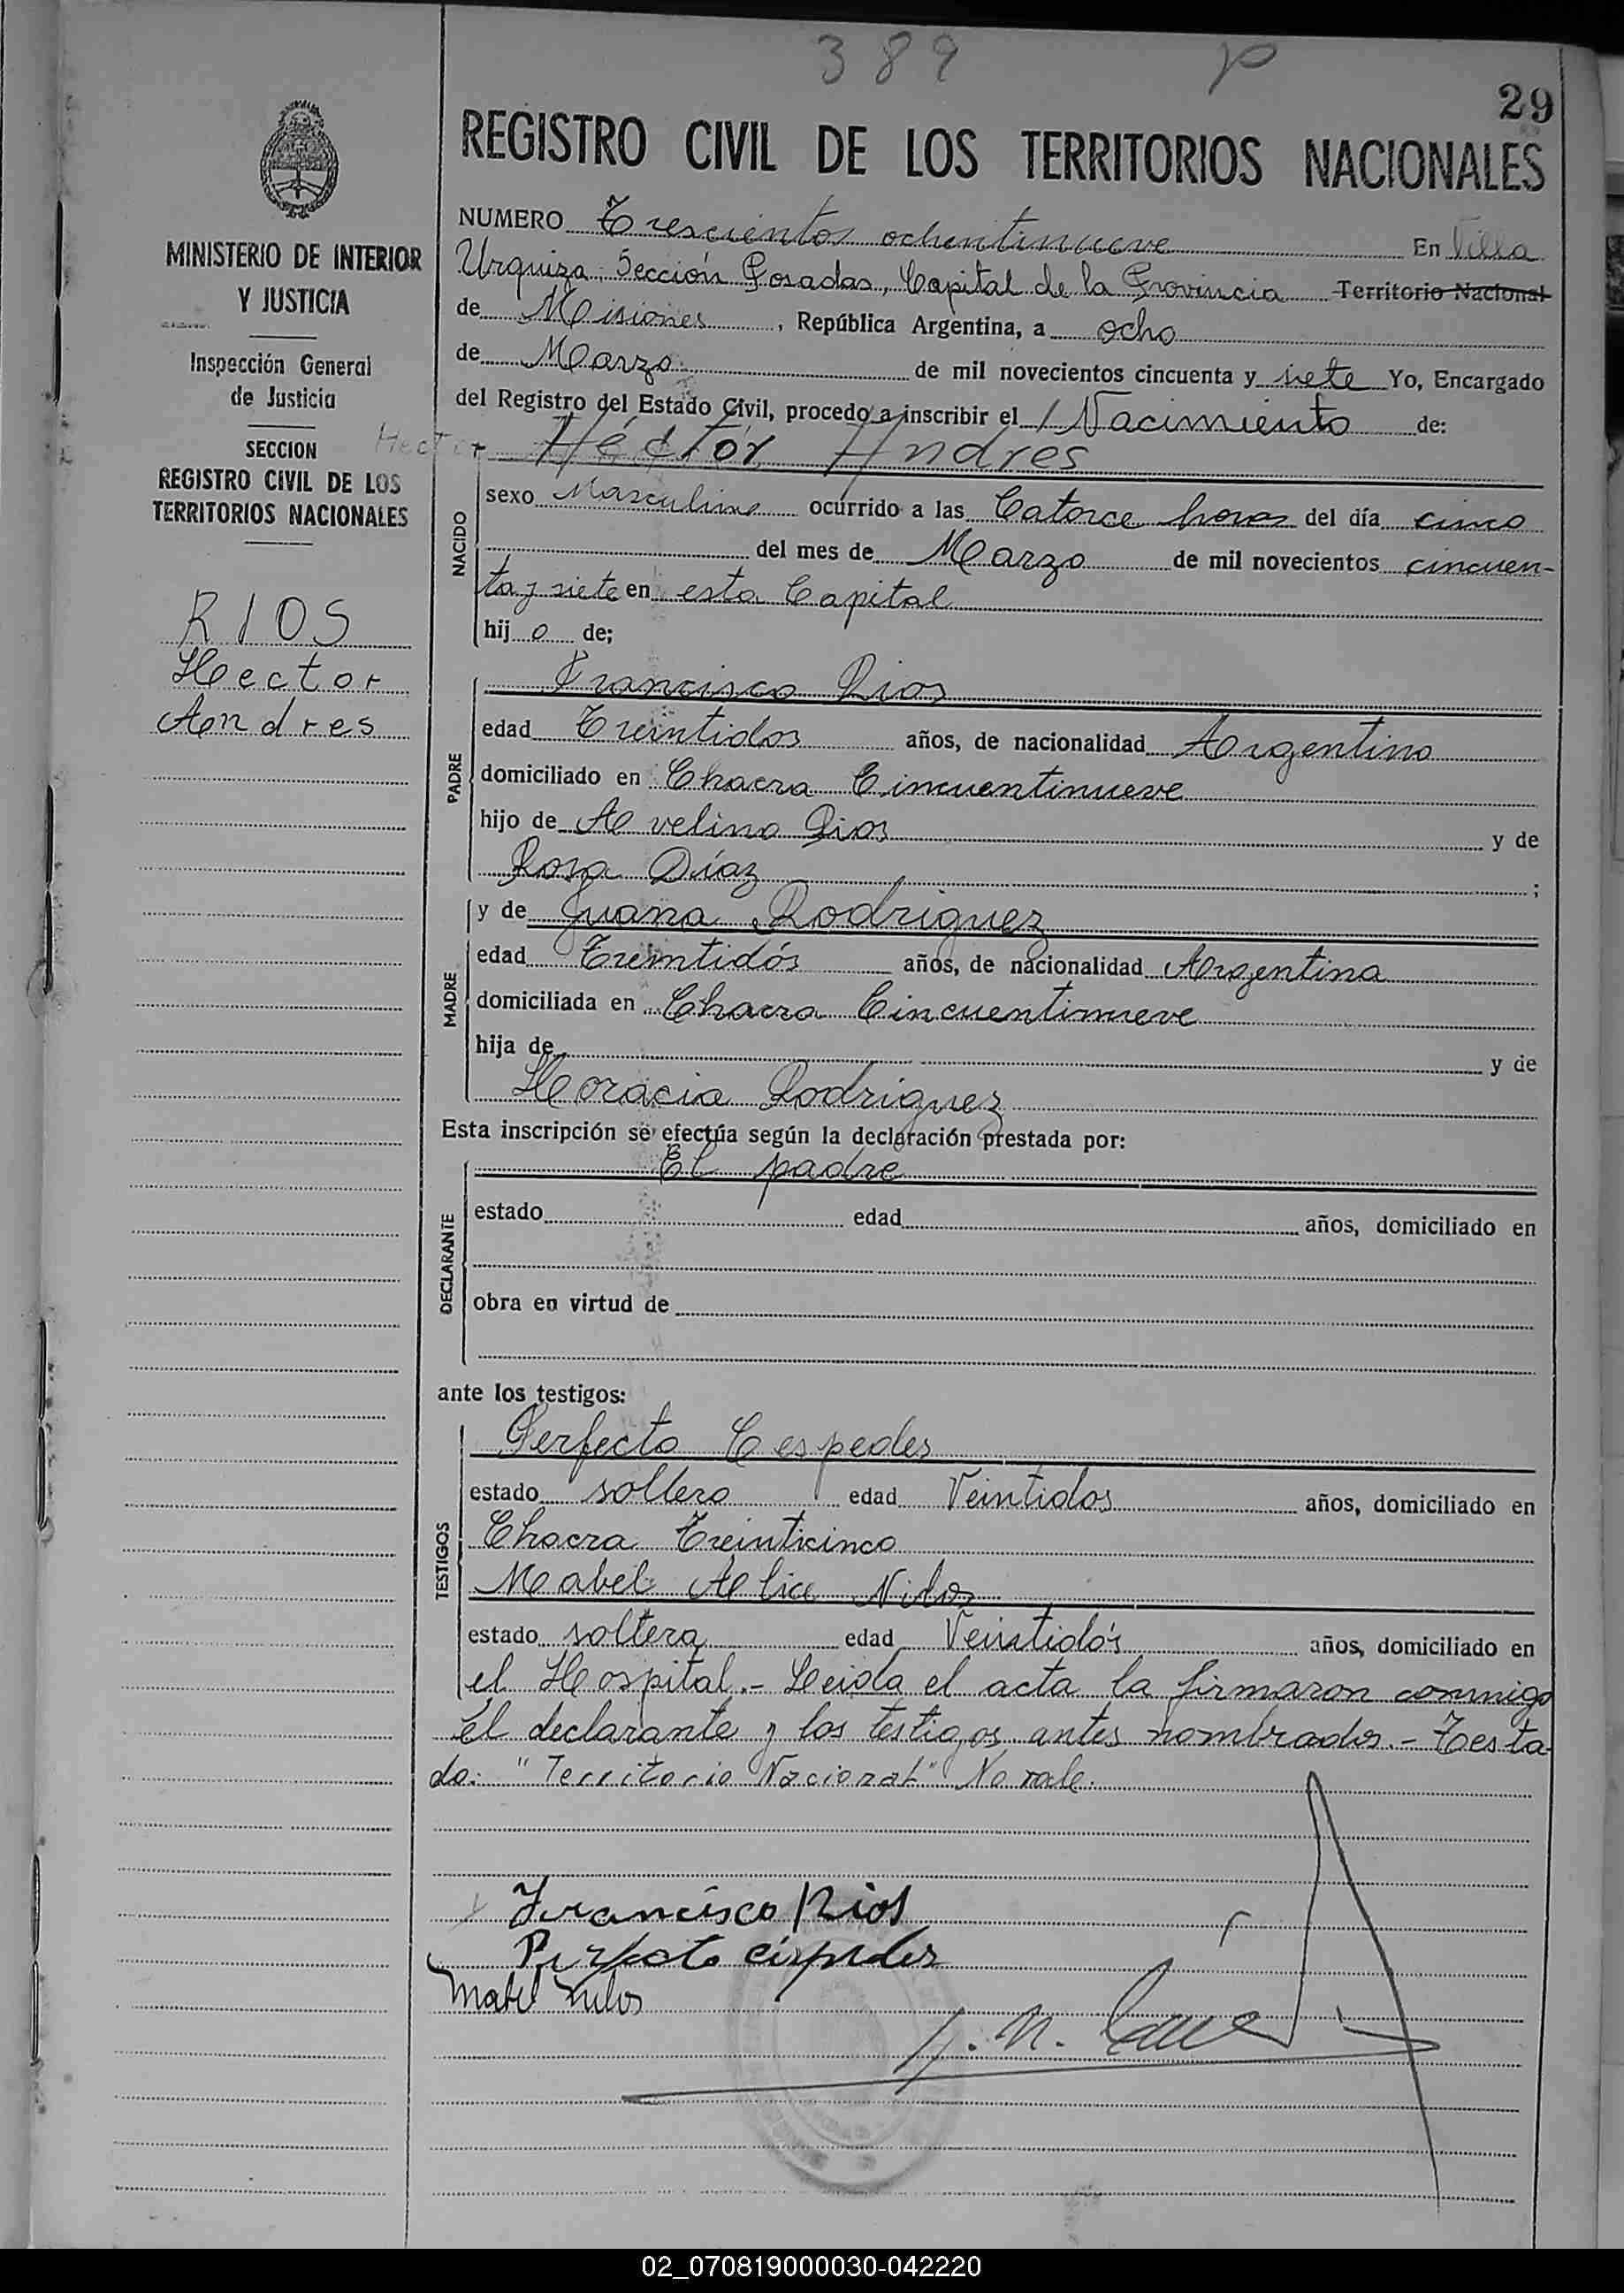 389
29
REGISTRO CIVIL DE LOS TERRITORIOS NACIONALES
MINISTERIO DE INTERIOR
Y JUSTICIA
Inspección General
de Justicia
SECCION
REGISTRO CIVIL DE LOS
TERRITORIOS NACIONALES
RIOS
Hector
Andres
NUMERO Trescientos ochentinueve En Villa
Urquiza, Sección Posadas, Capital de la Provincia Territorio Nacional
de Misiones, República Argentina, a ocho
de Marzo de mil novecientos cincuenta y siete Yo, Encargado
del Registro del Estado Civil, procedo a inscribir el Nacimiento de:
Hector Héctor Andres
NACIDO
sexo Masculino ocurrido a las Catorce horas del día cinco
del mes de Marzo de mil novecientos cincuen-
ta y siete en esta Capital
hijo de;
PADRE
Francisco Rios
edad Treintidos años, de nacionalidad Argentino
domiciliado en Chacra Cincuentinueve
hijo de Avelino Rios y de
Rosa Díaz ;
y de Juana Rodriguez
MADRE
edad Treintidós años, de nacionalidad Argentina
domiciliada en Chacra Cincuentinueve
hija de y de
Horacia Rodriguez
Esta inscripción se efectúa según la declaración prestada por:
DECLARANTE
El padre
estado edad años, domiciliado en
obra en virtud de
ante los testigos:
TESTIGOS
Perfecto Cespedes
estado soltero edad Veintidos años, domiciliado en
Chacra Treinticinco
Mabel Alice
estado soltera edad Veintidós años, domiciliado en
el Hospital.- Leida el acta la firmaron conmigo
el declarante y los testigos antes nombrados.- Testa-
do: "Territorio Nacional" No vale.
Francisco Rios
Perfecto céspedes
Mabel
02_070819000030-042220